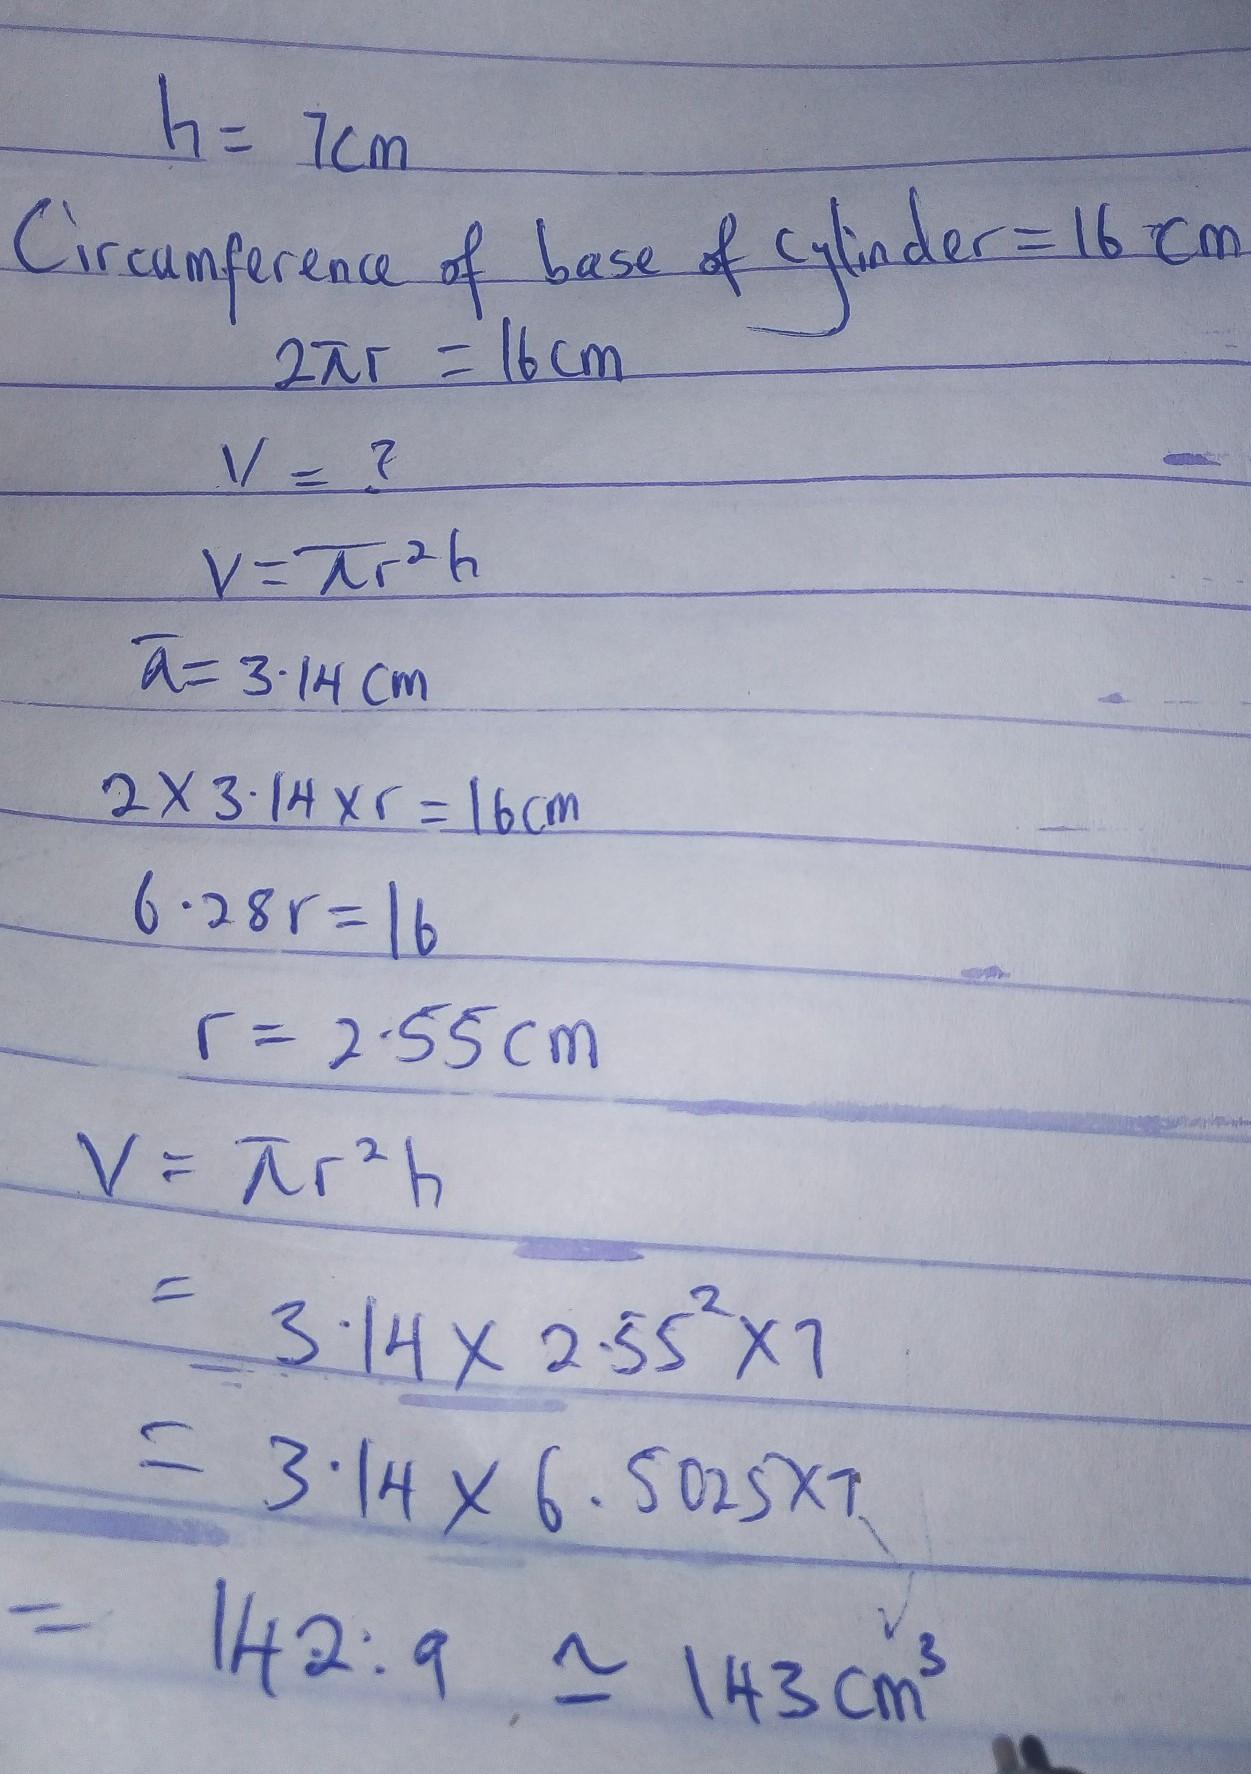 h = 7cm
Circumference of base of cylinder = 16 cm
2πr = 16cm
V = ?
V = πr²h
π = 3.14 cm
2 × 3.14 × r = 16cm
6.28r = 16
r = 2.55cm
V = πr²h
= 3.14 × 2.55² × 7
= 3.14 × 6.5025 × 7
= 142.9 ≃ 143cm³